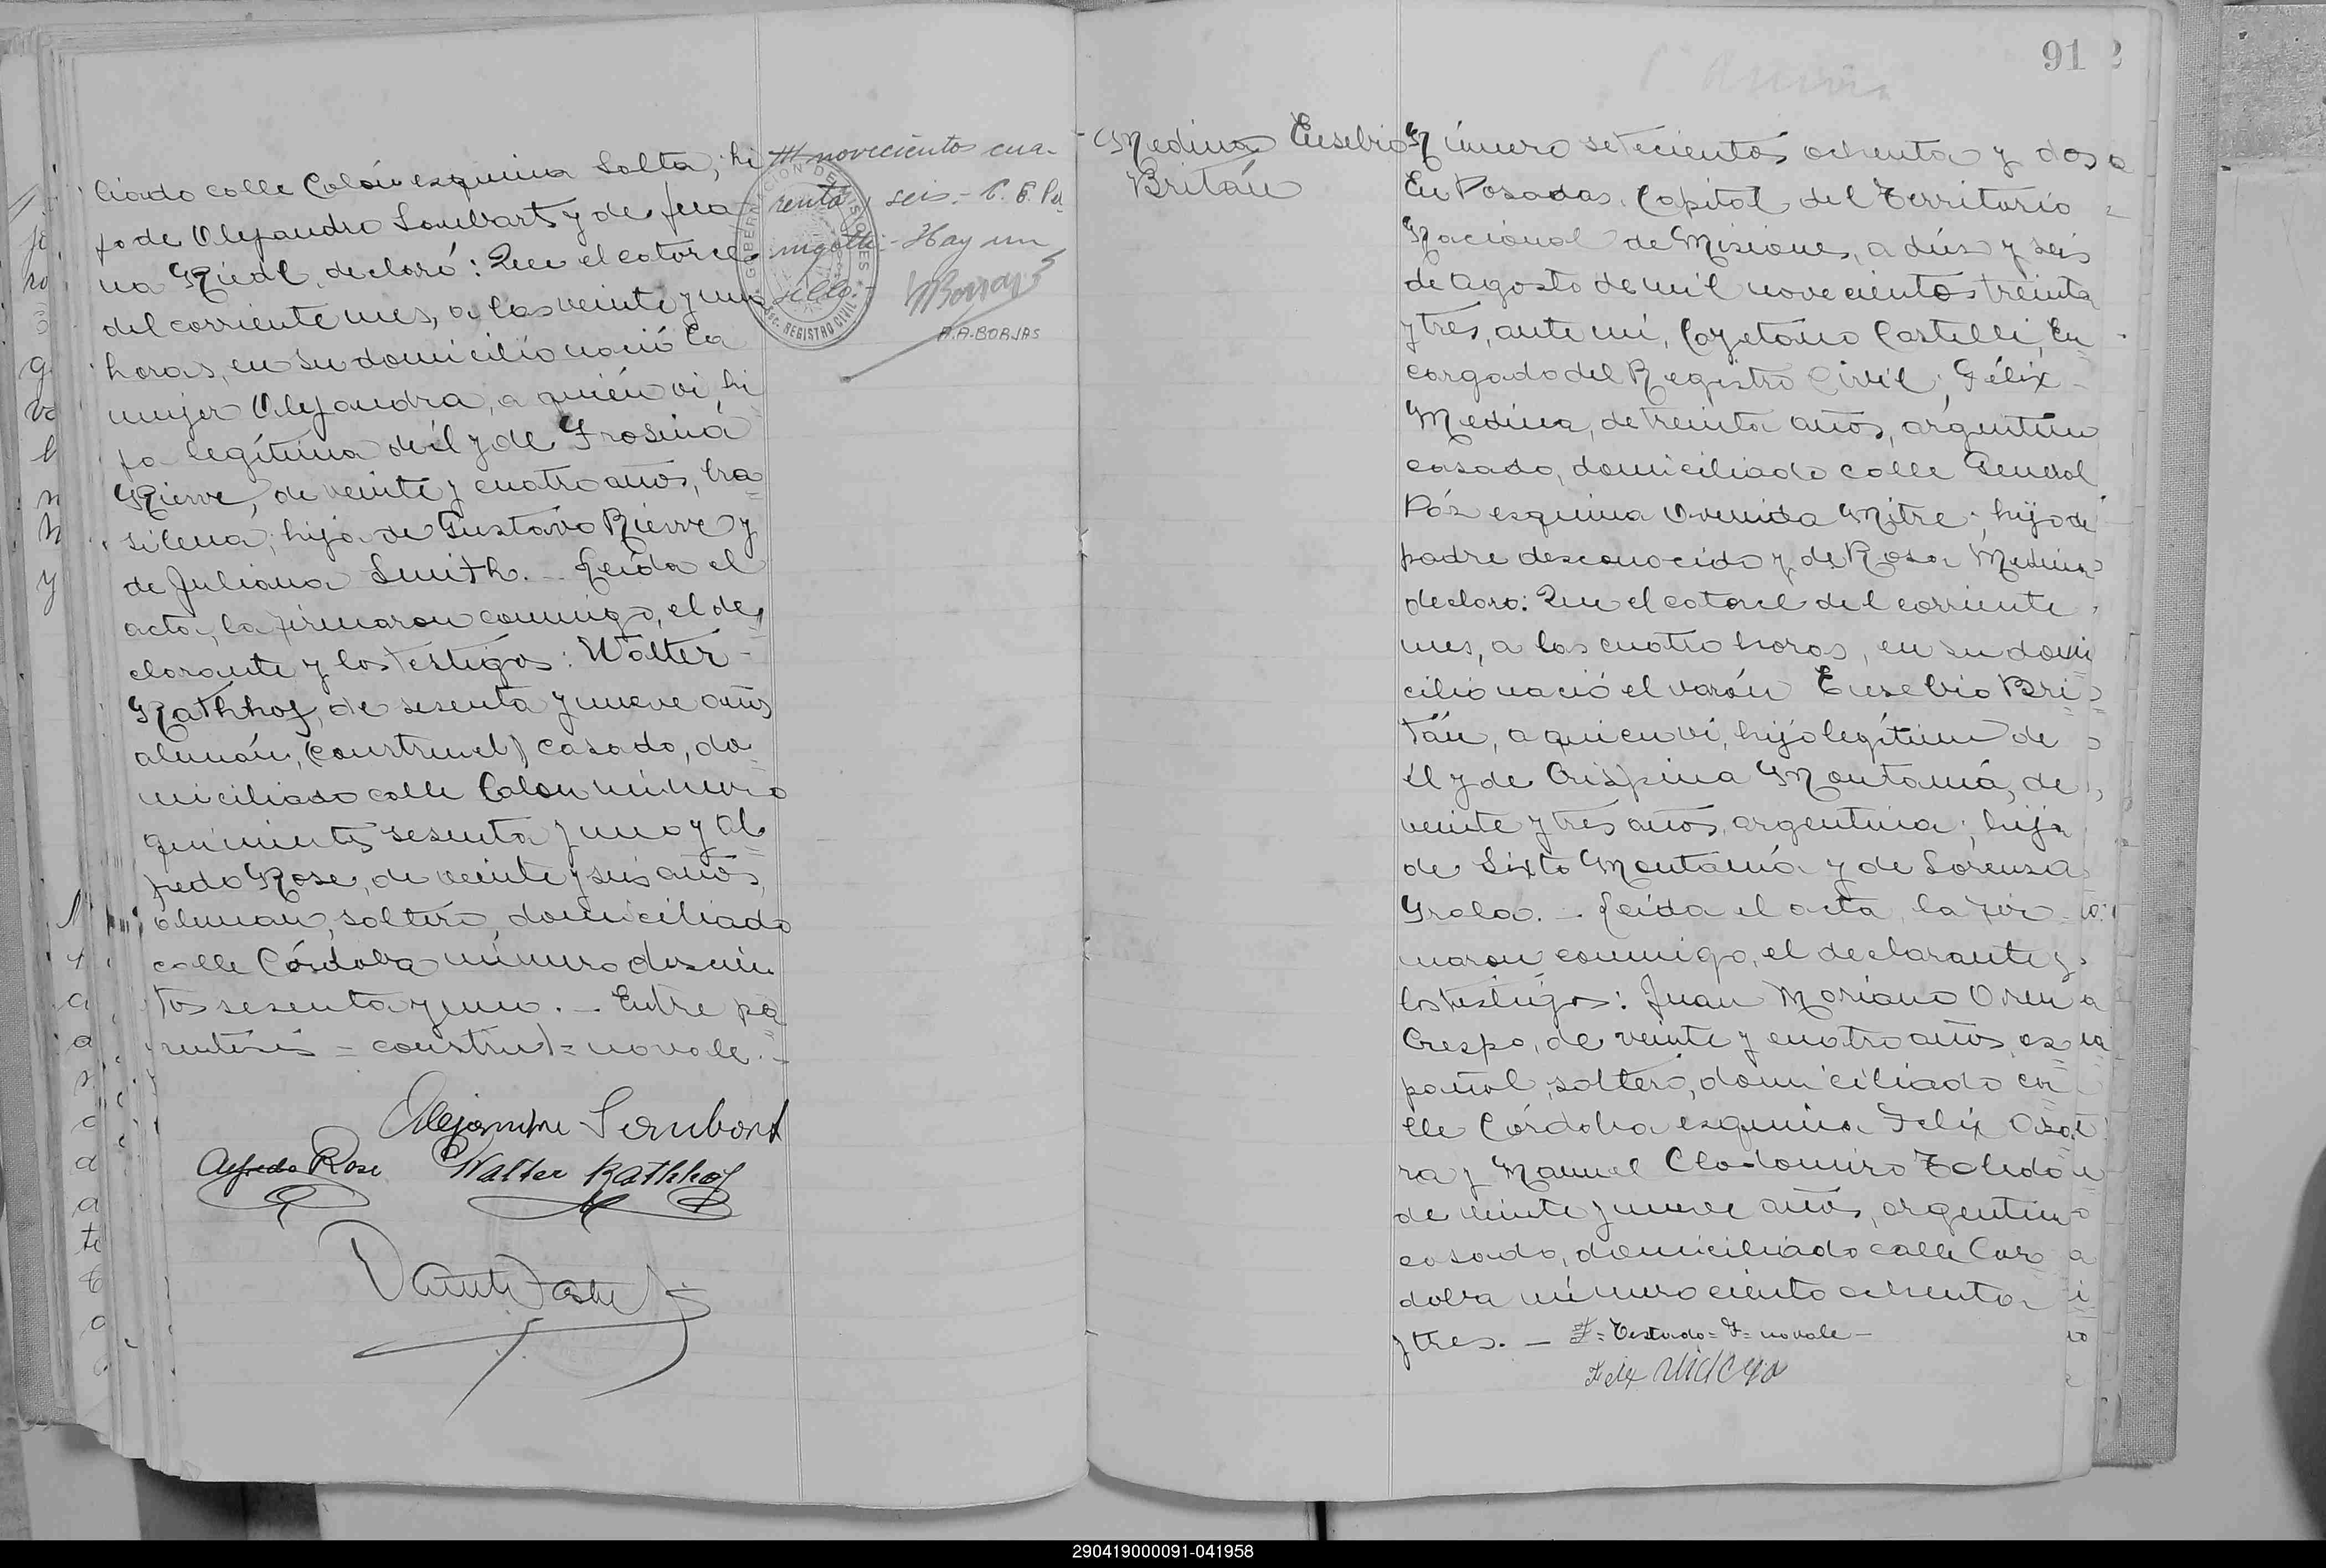 liado calle Colón esquina Salta, hi
jo de Alejandro Lombart y de Jua
na Riedl, declaró: Que el catorce
del corriente mes, a las veinte y una
horas, en su domicilio nació la
mujer Alejandra, a quién vi, hi
ja legítima de él y de Frosina
Rierve, de veinte y cuatro años, bra
silena; hija de Gustavo Rierve y
de Juliana Smith. - Leída el
acta, la firmaron conmigo, el de
clarante y los testigos: Walter
Rathhof, de sesenta y nueve años
alemán, (construct) casado, do
miciliado calle Colon número
quinientos sesenta y uno y Al
fredo Rose, de veinte y seis años,
aleman, soltero, domiciliado
calle Córdoba número doscien
tos sesenta y uno. - Entre pa
rentesis = construct = no vale. -
Alfredo Rose Walter Rathhof
novecientos cua-
renta y seis. -
- Hay un
sello. -
GOBERNACION DE MISIONES
REGISTRO CIVIL
A.A. BORJAS
91
Medina Eusebio
Britán
Número setecientos ochenta y dos
En Posadas, Capital del Territorio
Nacional de Misiones, a diez y seis
de agosto de mil novecientos treinta
y tres, ante mi, Cayetano Castelli, En
cargado del Registro Civil, Félix
Medina, de treinta años, argentino
casado, domiciliado calle General
Páz esquina Avenida Mitre; hijo de
padre desconocido y de Rosa Medina
declaro: Que el catorce del corriente
mes, a las cuatro horas, en su domi
cilio nació el varón Eusebio Bri
tán, a quien vi, hijo legítimo de
él y de Crispina Montaná, de
veinte y tres años, argentina; hija
de Sixto Montaná y de Lorenza
Grala. - Leída el acta, la fir
maron conmigo, el declarante y
los testigos: Juan Mariano Oren
Crespo, de veinte y cuatro años, es
pañol, soltero, domiciliado ca
lle Córdoba esquina Felix Aza
ra y Manuel Clodomiro Toledo
de veinte y nueve años, argentino
casado, domiciliado calle Cor
doba número ciento ochenta
y tres. - F = Testado = F = no vale -
290419000091-041958